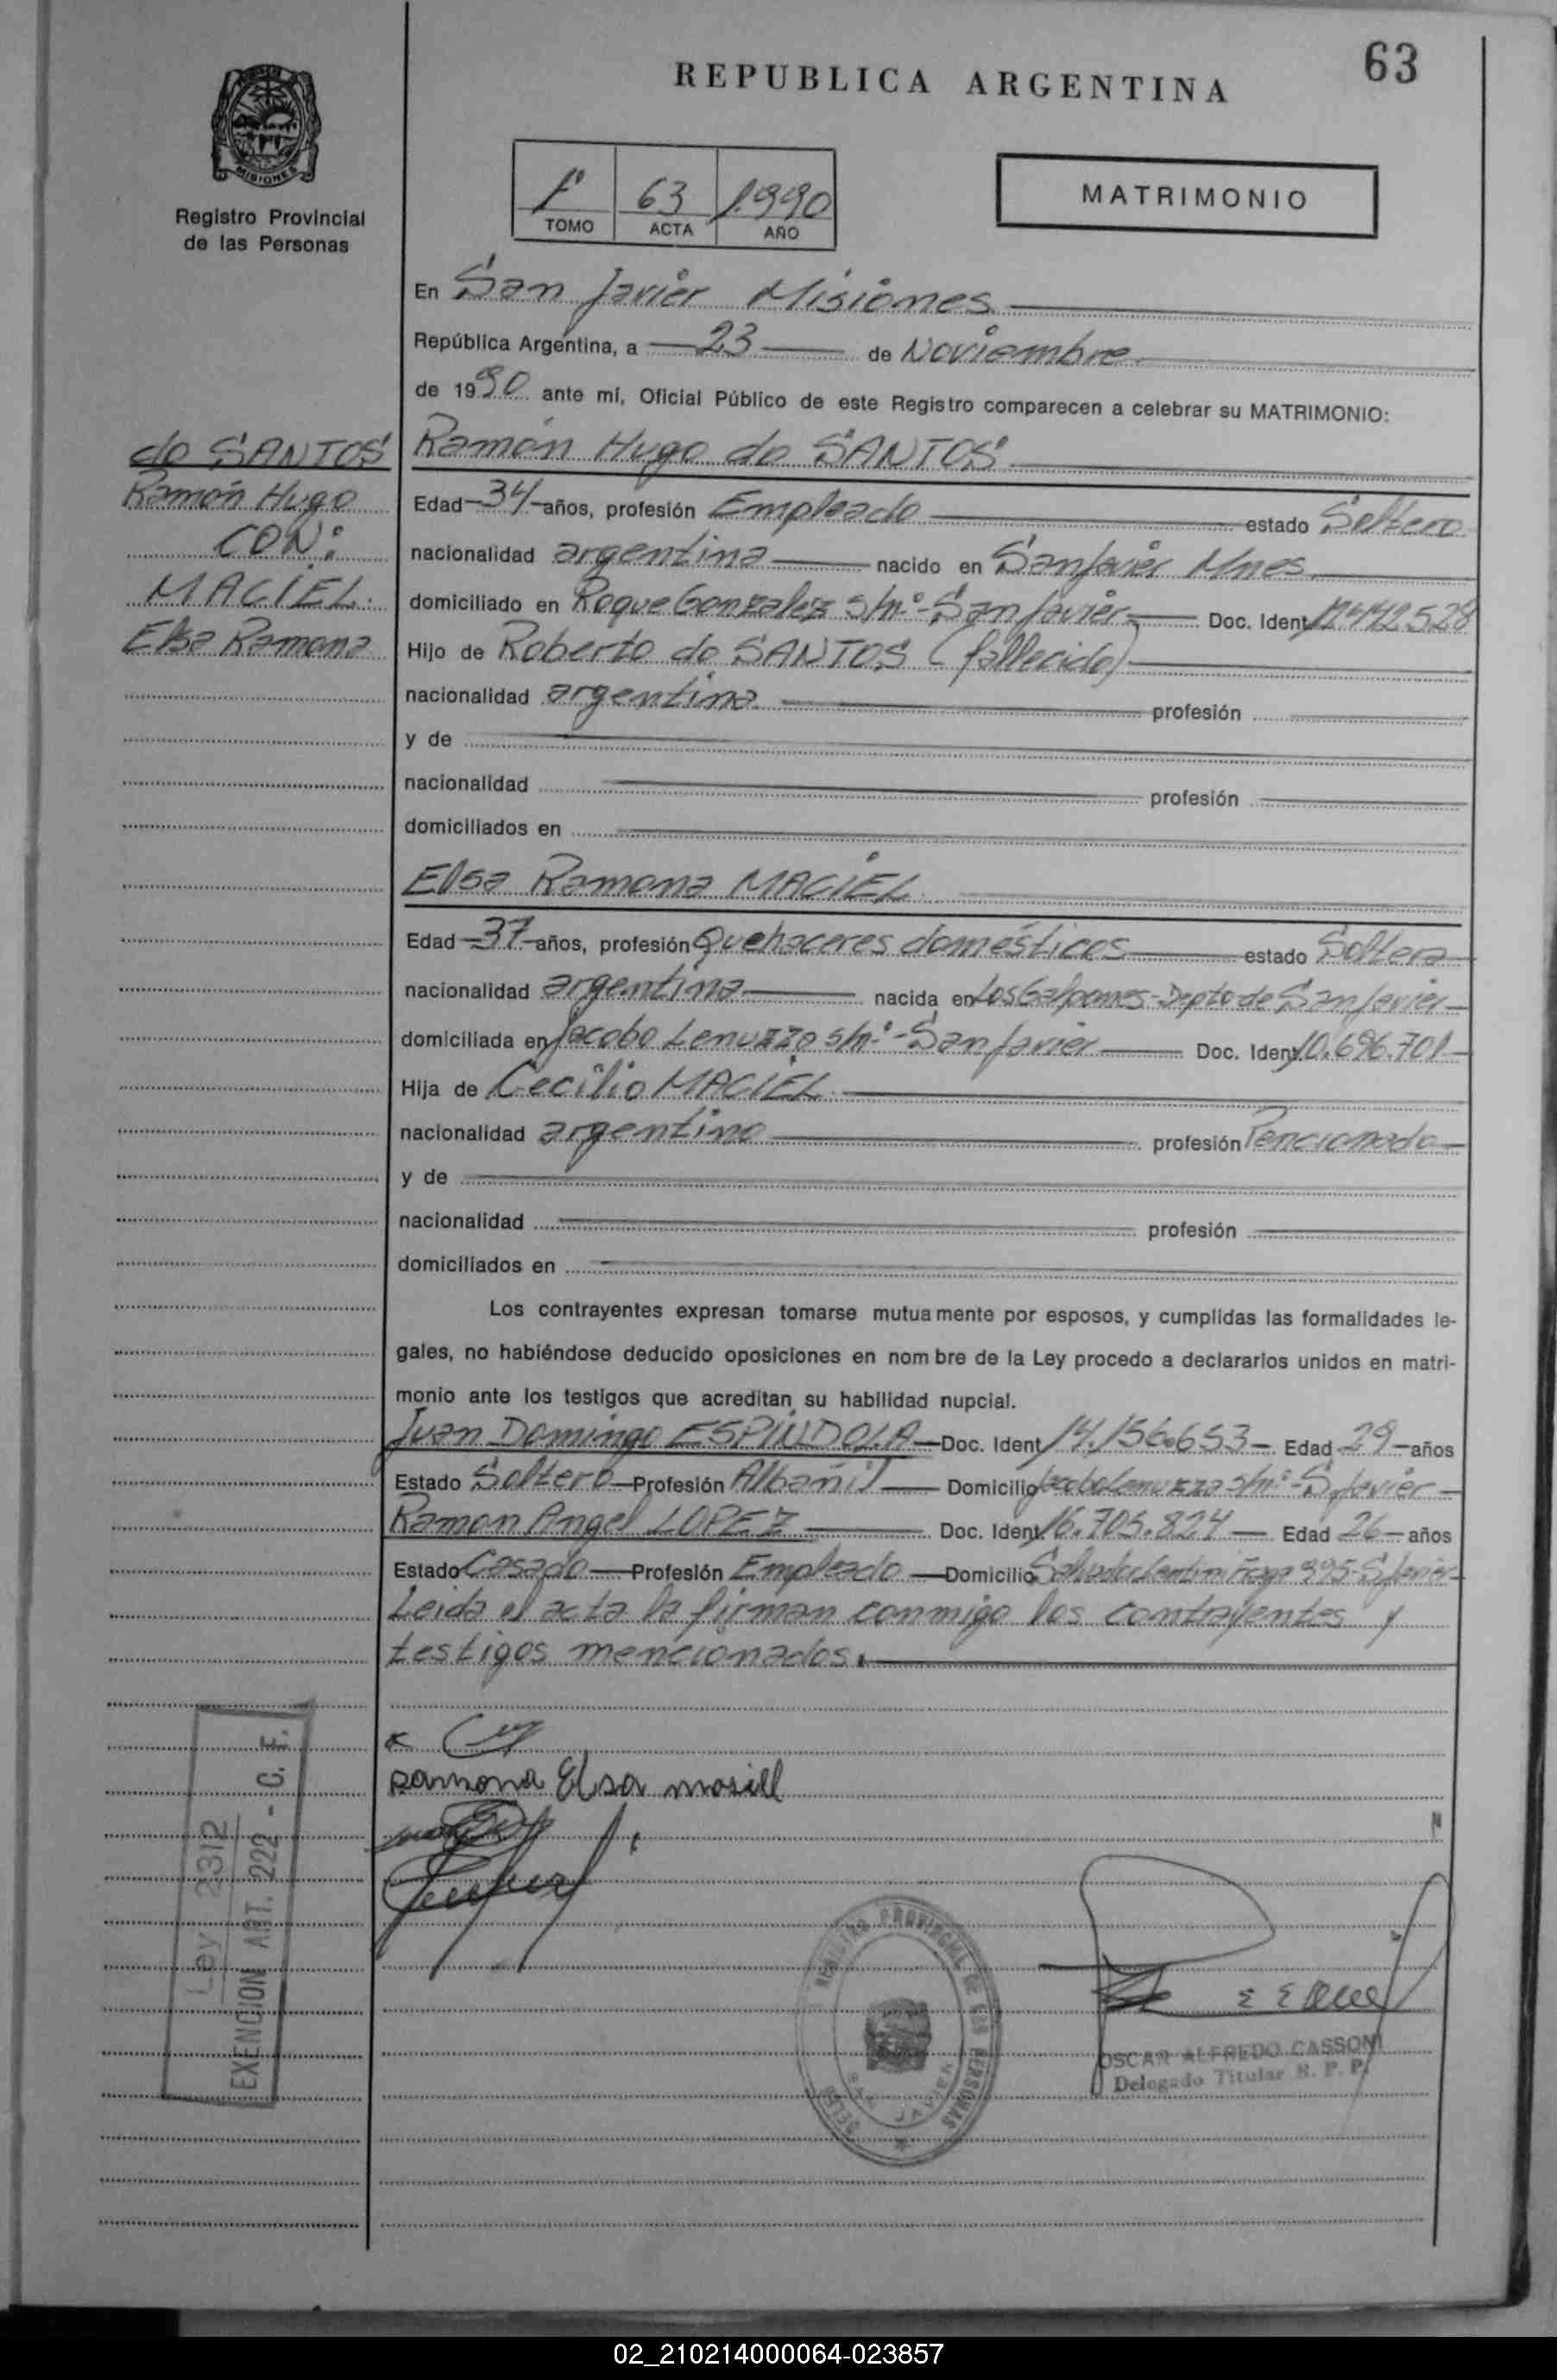 63
REPUBLICA ARGENTINA
MISIONES
Registro Provincial
de las Personas
1º 63 1.990
TOMO ACTA AÑO
MATRIMONIO
En San Javier Misiones
República Argentina, a 23 de Noviembre
de 1990 ante mí, Oficial Público de este Registro comparecen a celebrar su MATRIMONIO:
do SANTOS
Ramón Hugo
CON:
MACIEL
Elsa Ramona
Ramón Hugo do SANTOS
Edad 34 años, profesión Empleado estado Soltero
nacionalidad argentina nacido en San Javier Mnes
domiciliado en Roque Gonzalez s/nº - San Javier Doc. Ident
Hijo de Roberto do SANTOS (fallecido)
nacionalidad argentina profesión
y de
nacionalidad profesión
domiciliados en
Elsa Ramona MACIEL
Edad 37 años, profesión Quehaceres domésticos estado Soltera
nacionalidad argentina nacida en Los Galpones - Depto de San Javier
domiciliada en Jacobo Lenuzzo s/nº - San Javier Doc. Ident 10.696.701
Hija de Cecilio MACIEL
nacionalidad argentino profesión Pencionado
y de
nacionalidad profesión
domiciliados en
Los contrayentes expresan tomarse mutuamente por esposos, y cumplidas las formalidades le-
gales, no habiéndose deducido oposiciones en nombre de la Ley procedo a declararlos unidos en matri-
monio ante los testigos que acreditan su habilidad nupcial.
Juan Domingo ESPINDOLA Doc. Ident 14.156.653 Edad 29 años
Estado Soltero Profesión Albañil Domicilio Jacobo Lenuzzo s/nº - S. Javier
Ramon Angel LOPEZ Doc. Ident 16.705.824 Edad 26 años
Estado Casado Profesión Empleado Domicilio 995 - S. Javier
Leida el acta la firman conmigo los contrayentes y
testigos mencionados.
Ramona Elsa masiell
Ley 2312
EXENCION ART. 222 - C. F.
REGISTRO PROVINCIAL DE LAS PERSONAS
SAN JAVIER
OSCAR ALFREDO CASSONI
Delegado Titular R. P. P.
02_210214000064-023857